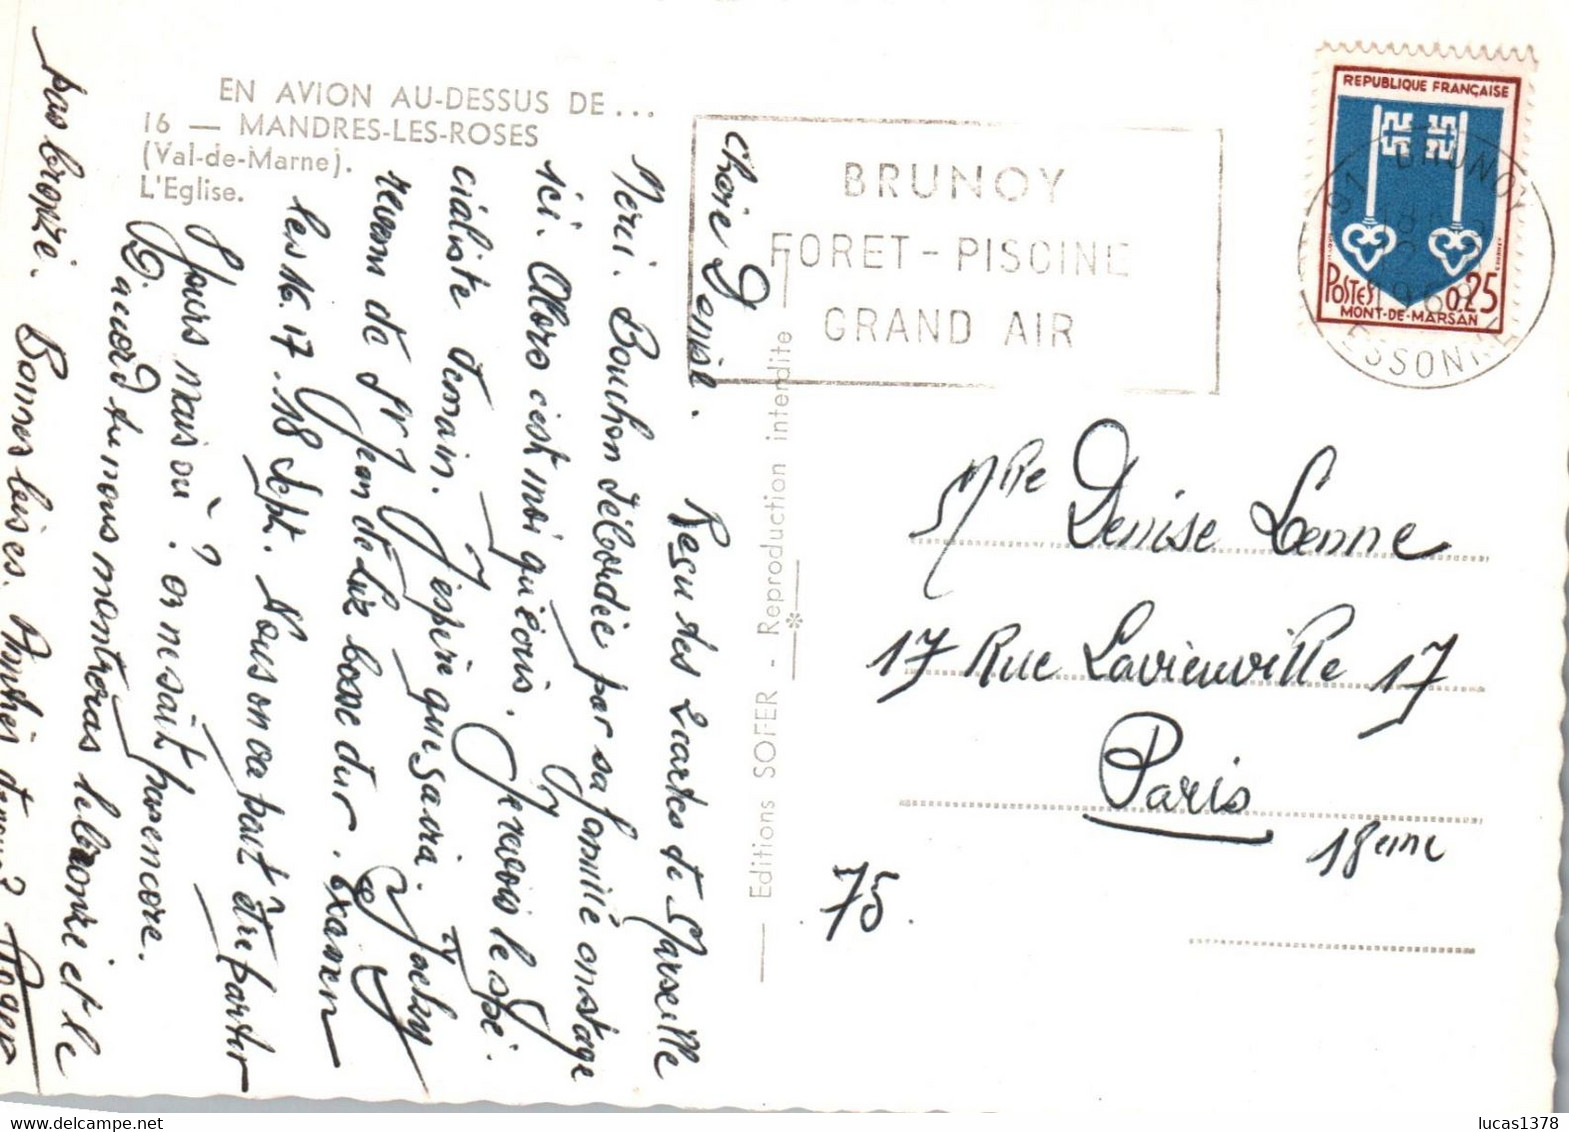 EN AVION AU-DESSUS DE...
16 — MANDRES-LES-ROSES
(Val-de-Marne).
L'Eglise.
Chère Denise.
Reçu tes 2 cartes de Marseille
Merci. Bouchon débordée par sa famille en stage
ici. Alors c'est moi qu'écris. Je revois le spé-
cialiste demain. J'espère que sa ira. Jacky
revenu de St Jean de Luz bosse dur. Examen
les 16.17.18 Sept. Nous on va peut être partir
8 jours mais où? on ne sait pas encore.
D'accord tu nous montreras le bronzé et le
pas bronzé. Bonnes bises. Roger
Editions SOFER - Reproduction interdite
BRUNOY
FORET - PISCINE
GRAND AIR
REPUBLIQUE FRANÇAISE
POSTES 0,25
MONT-DE-MARSAN
91 BRUNOY
18
1968
ESSONNE
Mlle Denise Lenne
17 Rue Lavieuville 17
Paris
18eme
75.
lucas1378